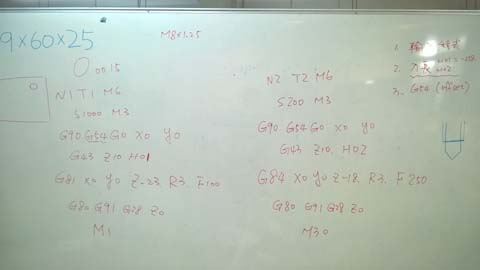 9×60×25
M8×1.25
O0015
N1 T1 M6
S1000 M3
G90 G54 G0 X0 Y0
G43 Z10. H01
G81 X0 Y0 Z-23. R3. F100
G80 G91 G28 Z0
M1
N2 T2 M6
S200 M3
G90 G54 G0 X0 Y0
G43 Z10. H02
G84 X0 Y0 Z-18. R3. F250
G80 G91 G28 Z0
M30
1. 輸入程式
2. 刀長
3. G54 (offset)